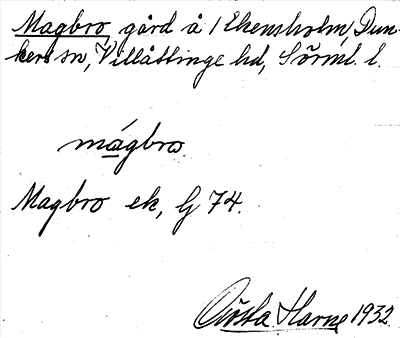 Magbro, gård å 1 Ekensholm, Dun-
kers sn, Villåttinge hd, Sörml. l.
mágbro.
Magbro ek, G 74.
Gösta Harne 1932